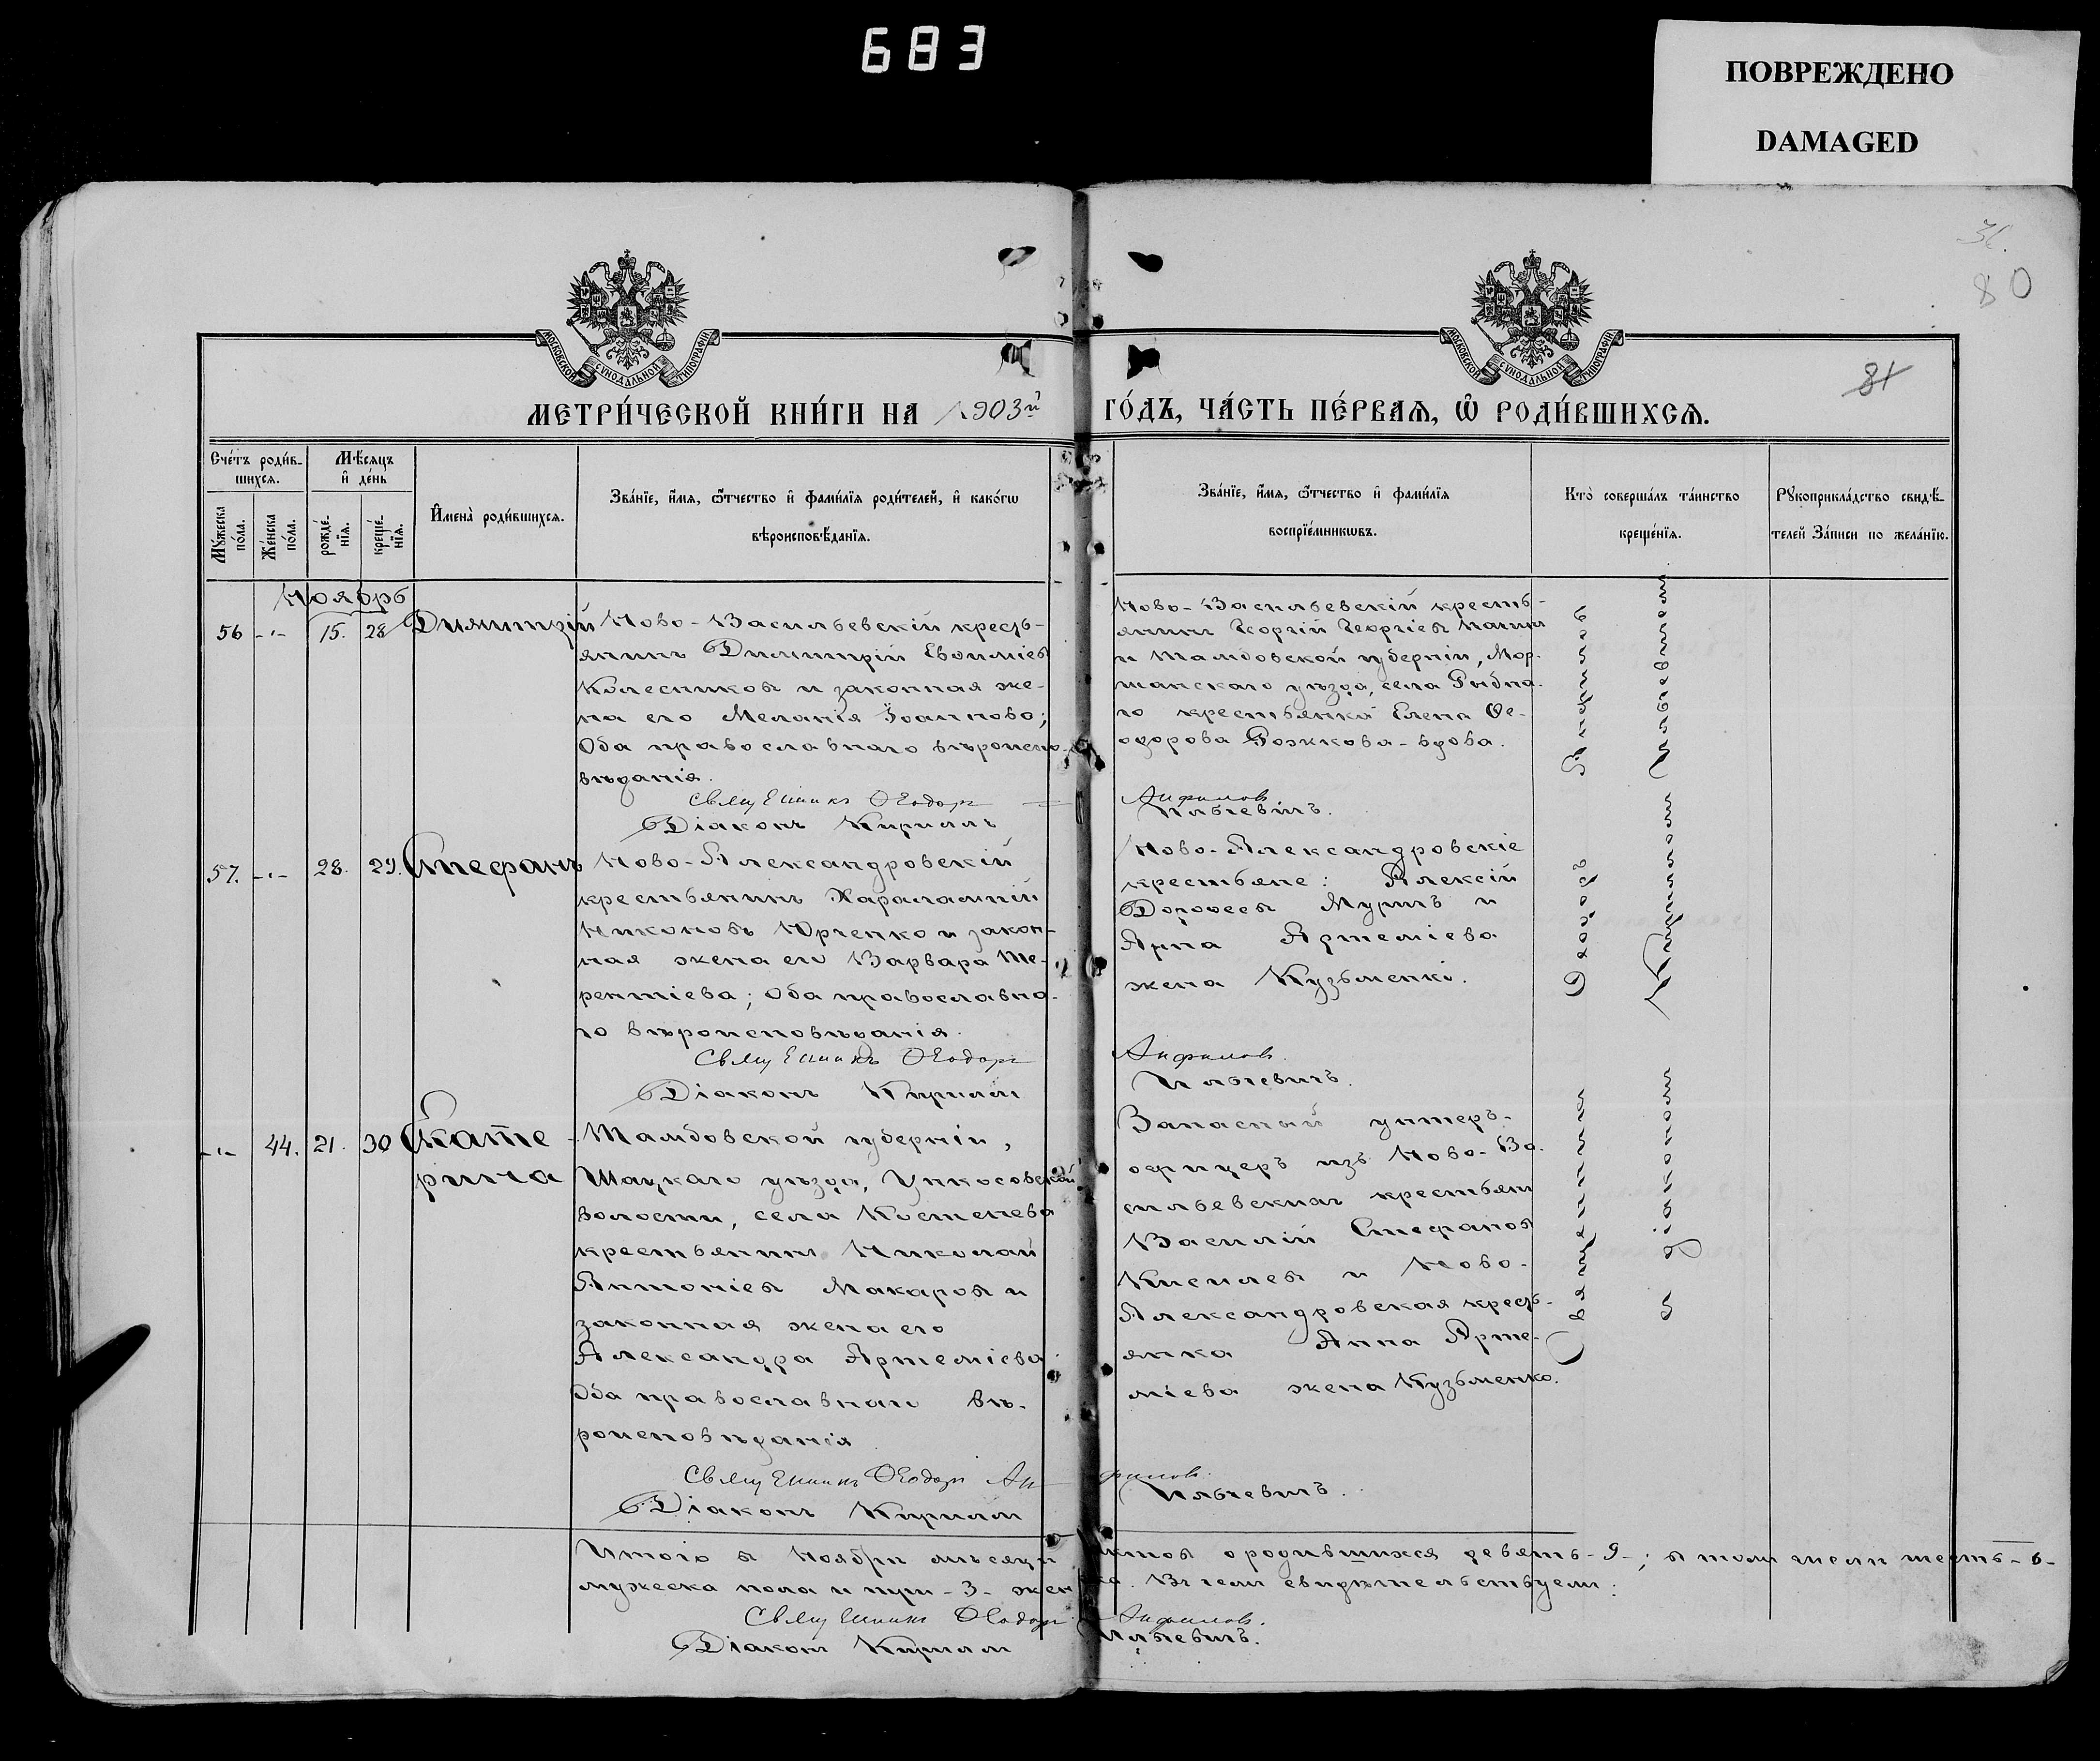 683
ПОВРЕЖДЕНО
DAMAGED
36.
80
81
МОСКОВСКОЙ СѴНОДАЛЬНОЙ ТИПОГРАФІИ.
МОСКОВСКОЙ СѴНОДАЛЬНОЙ ТИПОГРАФІИ.
МЕТРИ́ЧЕСКОЙ КНИ́ГИ НА 1903й ГО́ДЪ, ЧА́СТЬ ПЕ́РВАѦ, Ѡ҆ РОДИ́ВШИХСѦ.
Сче́тъ роди́в-
шихсѧ.
Му́жеска по́ла.
Же́нска по́ла.
Мѣ́сѧцъ
и҆ де́нь
рожде́-
нїѧ.
креще́-
нїѧ.
И҆мена̀ роди́вшихсѧ.
Зва́нїе, и҆́мѧ, ѻ҆́тчество и҆ фами́лїѧ роди́телей, и҆ како́гѡ
вѣроисповѣ́данїѧ.
Зва́нїе, и҆́мѧ, ѻ҆́тчество и҆ фами́лїѧ
воспрїе́мникѡвъ.
Кто̀ соверша́лъ та́инство
креще́нїѧ.
Рꙋкоприкла́дство свидѣ́-
телей за́писи по жела́нїю.
Ноябрь
56 -"- 15. 28 Димитрій
Ново-Васильевскій кресть-
янинъ Димитрій Евѳиміевъ
Колесниковъ и законная же-
на его Меланія Іоаннова;
Оба православнаго вѣроиспо-
вѣданія.
Священникъ Ѳеодоръ Анфиловъ
Діаконъ Кириллъ Ильчевичъ.
Ново-Васильевскій кресть-
янинъ Георгій Георгіевъ
и Тамбовской губерніи, Мор-
шанскаго уѣзда, села Рыбна-
го крестьянка Елена Ѳе-
одорова Рожкова-вдова.
57. -"- 28. 29. Стефанъ
Ново-Александровскій
крестьянинъ Харалампій
Никоновъ Юрченко и закон-
ная жена его Варвара Те-
рентіева; Оба православна-
го вѣроисповѣданія.
Священникъ Ѳеодоръ Анфиловъ.
Діаконъ Кириллъ Ильчевичъ.
Ново-Александровскіе
крестьяне: Алексій
Дороѳеевъ и
Анна Артеміева
жена Кузьменко.
-"- 44. 21. 30 Екате-
рина
Тамбовской губерніи,
Шацкаго уѣзда,
волости, села
крестьянинъ Николай
Антоніевъ Макаровъ и
законная жена его
Александра Артеміева
Оба православнаго вѣ-
роисповѣданія
Священникъ Ѳеодоръ Анфиловъ.
Діаконъ Кириллъ Ильчевичъ.
Запасный унтеръ-
офицеръ изъ Ново-Ва-
сильевскихъ крестьянъ
Василій Стефановъ
Киселевъ и Ново-
Александровская кресть-
янка Анна Арте-
міева жена Кузьменко.
Священникъ Ѳеодоръ Анфиловъ
съ діакономъ Кирилломъ Ильчевичемъ
Итого въ Ноябрѣ мѣсяцѣ актовъ о родившихся девять-9-; въ томъ числѣ шесть-6-
мужеска пола и три-3-женска. Въ чемъ свидѣтельствуемъ:
Священникъ Ѳеодоръ Анфиловъ.
Діаконъ Кириллъ Ильчевичъ.